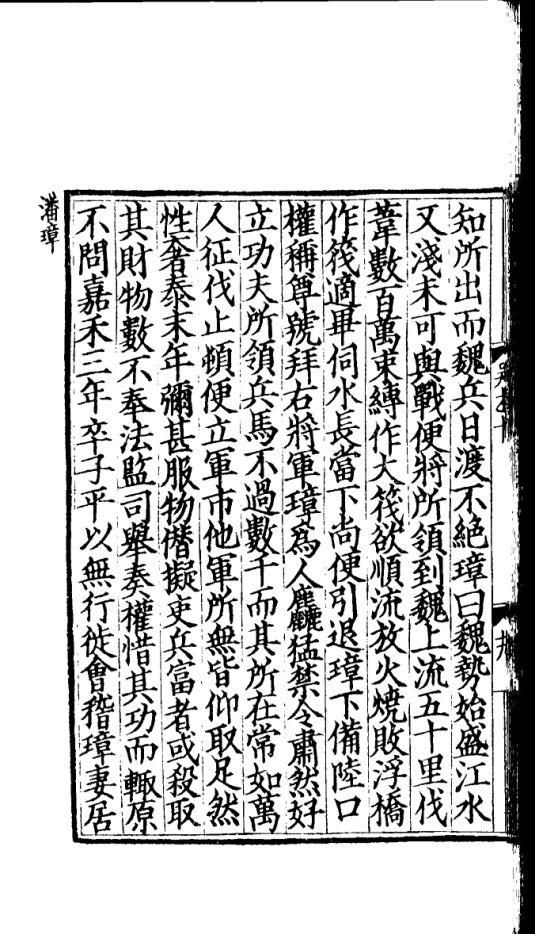 知所出而魏兵日渡不絶璋曰魏勢始盛江水
又淺未可與戰便將所領到魏上流五十里伐
葦數百萬束縛作大筏欲順流放火燒敗浮橋
作筏適畢伺水長當下尚便引退璋下備陸口
權稱尊號拜右將軍璋爲人麤猛禁令肅然好
立功夫所領兵馬不過數千而其所在常如萬
人征伐止頓便立軍市他軍所無皆仰取足然
性奢泰末年彌甚服物僭擬吏兵富者或殺取
其財物數不奉法監司舉奏權惜其功而輙原
不問嘉禾三年卒子平以無行徙會稽璋妻居
潘璋